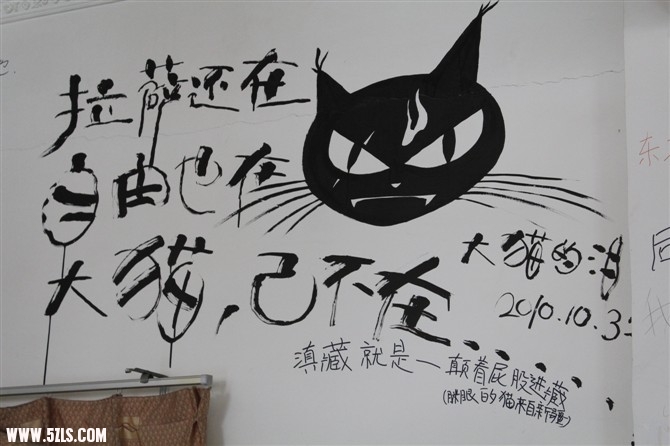 拉萨还在
自由也在
大猫,已不在......
大猫的
2010.10.3
滇藏就是一颠着屁股进藏
的猫来自
东
同
我
WWW.5ZLS.COM